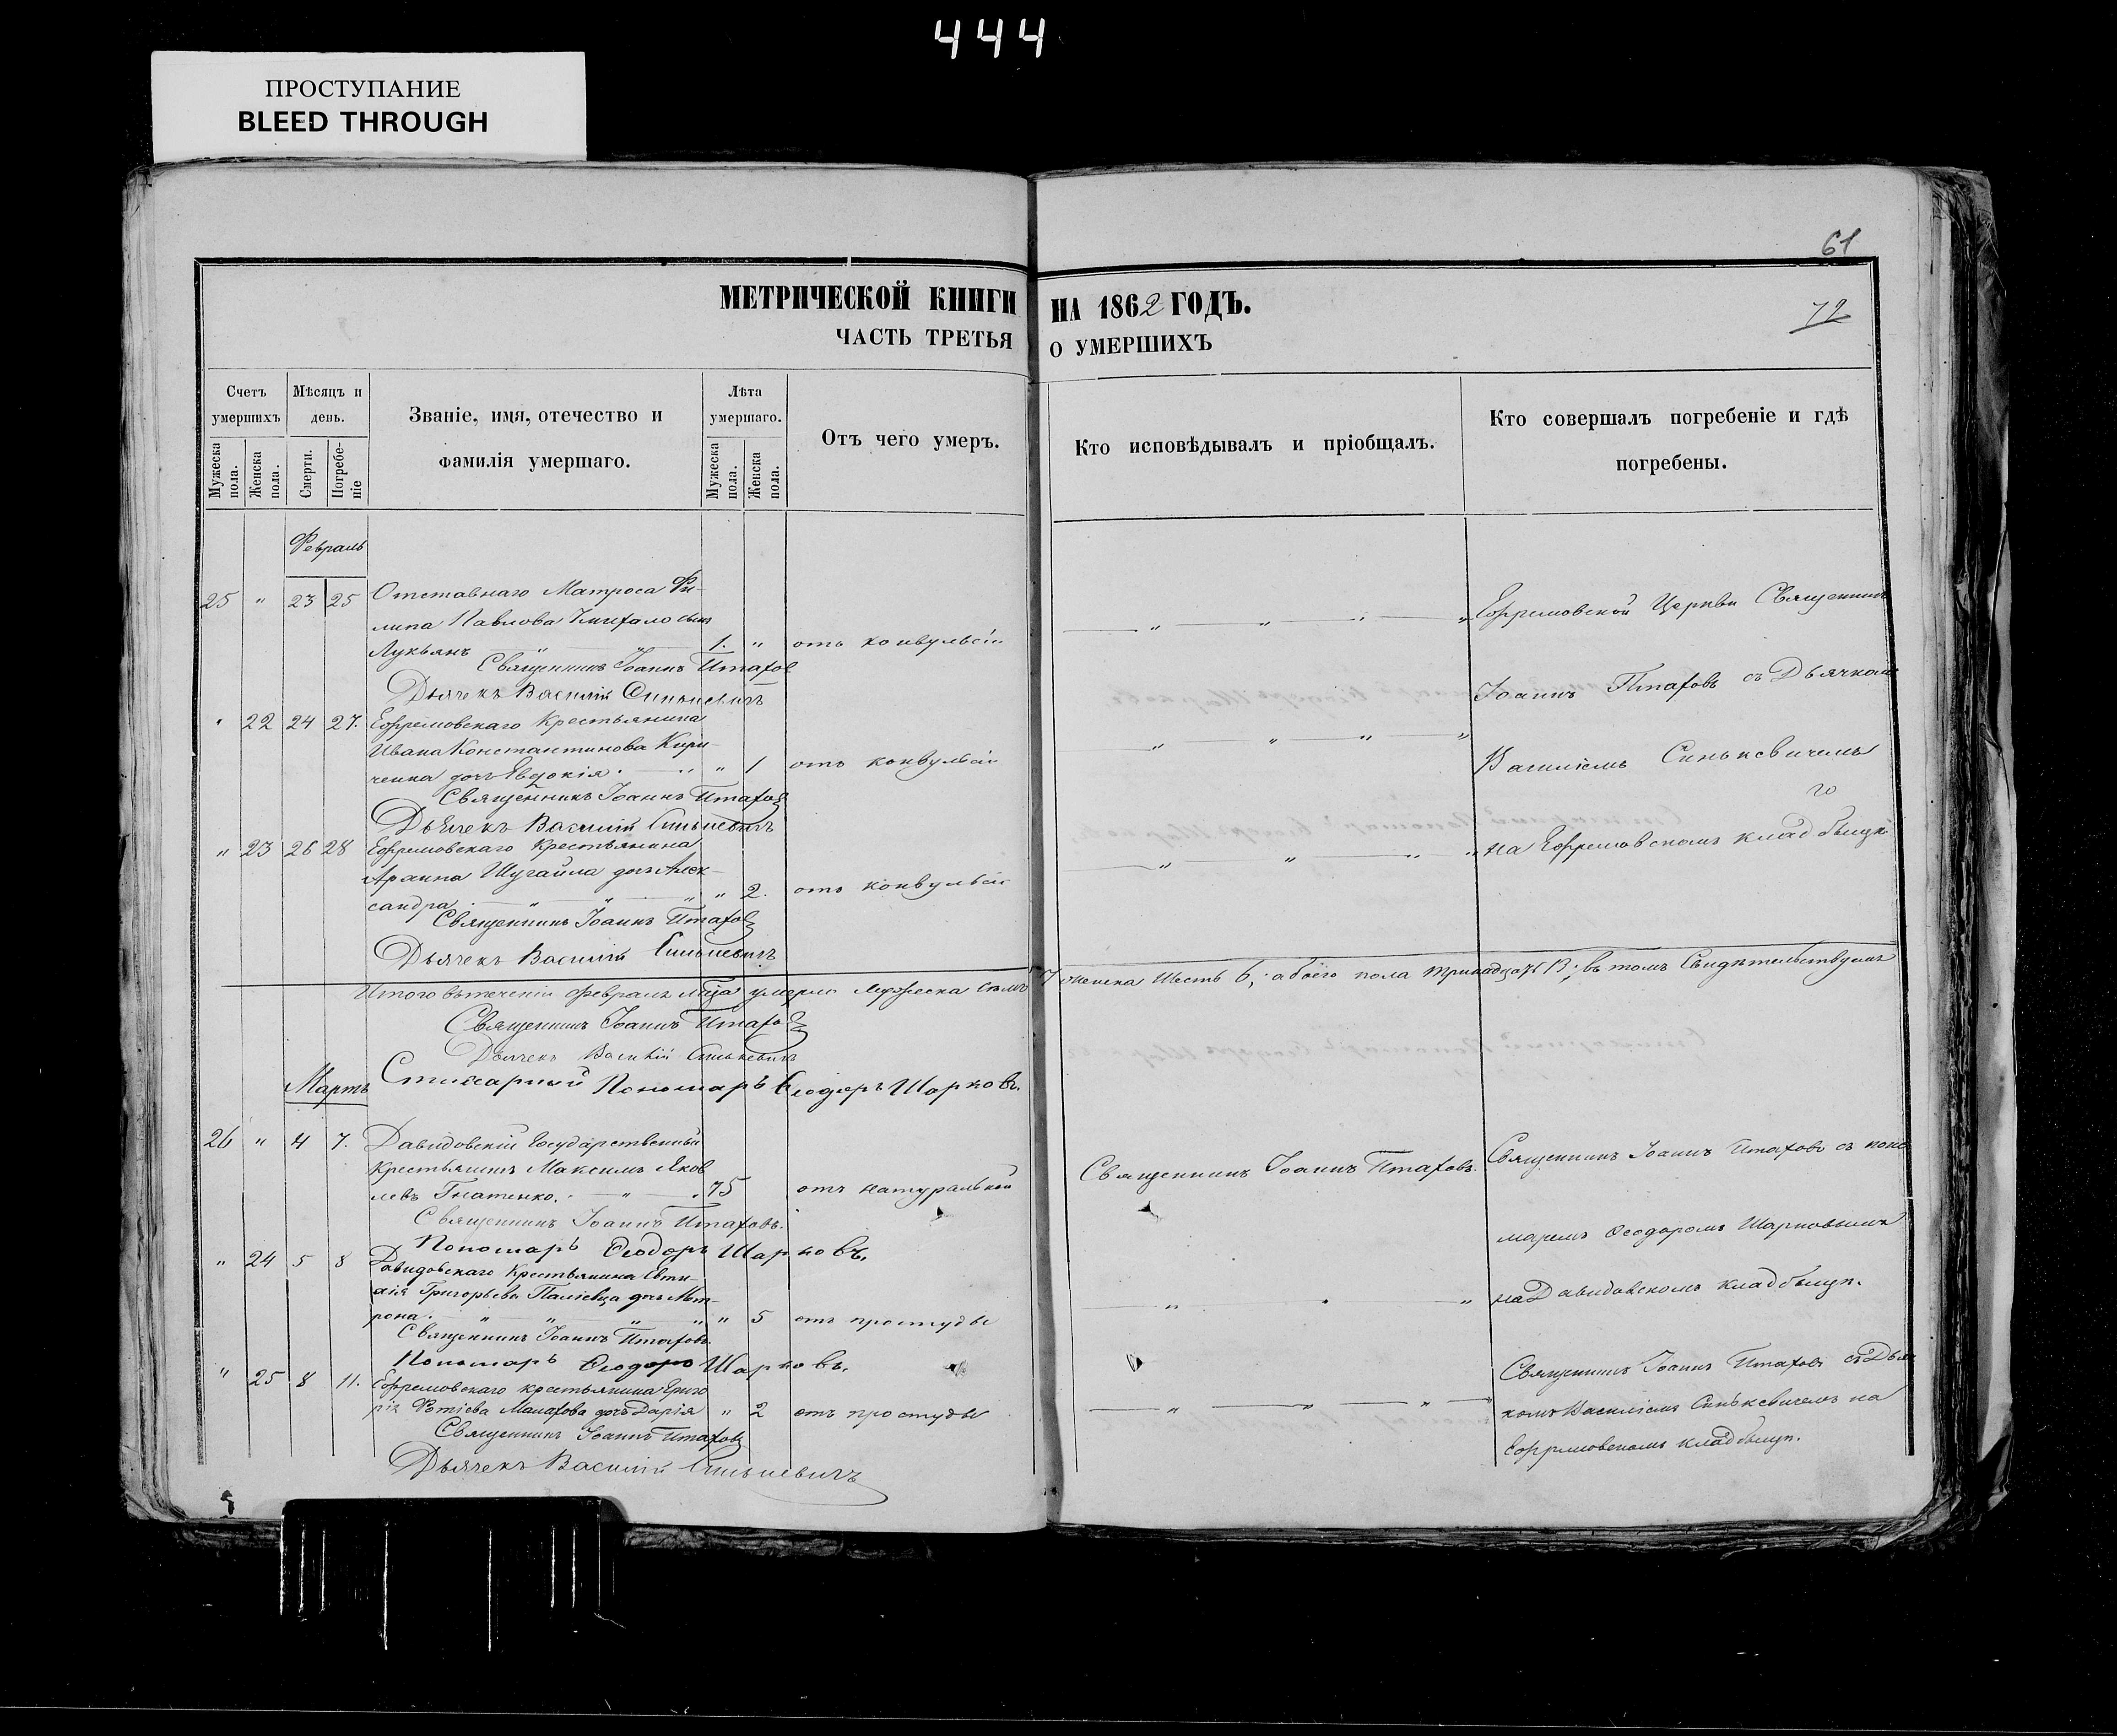 444
ПРОСТУПАНИЕ
BLEED THROUGH
61
72
МЕТРИЧЕСКОЙ КНИГИ НА 1862 ГОДЪ.
ЧАСТЬ ТРЕТЬЯ О УМЕРШИХЪ
Счетъ умершихъ
Мужеска пола.
Женска пола.
Мѣсяцъ и день.
Смерти.
Погребеніе
Званіе, имя, отечество и
фамилія умершаго.
Лѣта умершаго.
Мужеска пола.
Женска пола.
Отъ чего умеръ.
Кто исповѣдывалъ и пріобщалъ.
Кто совершалъ погребеніе и гдѣ
погребены.
Февраль
25 " 23 25 Отставнаго Матроса Фи-
липа Павлова сынъ
Лукьянъ " " 1. " отъ конвульсіи
Священникъ Іоаннъ Птахов
Дьячекъ Василій Синькевичъ
Ефремовской Церкви Священникъ
Іоаннъ Птаховъ съ Дьячкомъ
" 22 24 27. Ефремовскаго Крестьянина
Ивана Константинова Кири-
ченка дочь Евдокія " " 1 отъ конвульсіи
Священникъ Іоаннъ Птахов
Дьячекъ Василій Синькевичъ
Василіемъ Синькевичемъ
" 23 26 28 Ефремовскаго Крестьянина
Шугайла дочь Алек-
сандра " " " 2. отъ конвульсіи
Священникъ Іоаннъ Птахов
Дьячекъ Василій Синькевичъ
на Ефремовскомъ кладбищѣ
Итого въ теченіи Февраля м-ца умерло Мужеска Семь 7 женска Шесть 6; обоего пола тринадцать 13; въ томъ Свидѣтельствуемъ
Священникъ Іоаннъ Птахов
Дьячекъ Василій Синькевичъ
Стихарный Пономарь Ѳеодоръ Шарковъ.
Мартъ
26 " 4 7. Давидовскій Государственный
Крестьянинъ Максимъ Яков
левъ Гнатенко. " 75 отъ натуральной
Священникъ Іоаннъ Птаховъ.
Пономарь Ѳеодоръ Шарковъ.
Священникъ Іоаннъ Птаховъ.
Священникъ Іоаннъ Птаховъ съ поно
маремъ Ѳеодоромъ Шарковымъ
на Давидовскомъ кладбищѣ.
" 24 5 8 Давидовскаго Крестьянина Евти-
хія Григорьева дочь Мат-
рона " " " " 5 отъ простуды
Священникъ Іоаннъ Птаховъ.
Пономарь Ѳеодоръ Шарковъ.
" 25 8 11. Ефремовскаго крестьянина Григо
рія Фотіева Малахова дочь Дарія " 2 отъ простуды
Священникъ Іоаннъ Птахов
Дьячекъ Василій Синькевичъ
Священникъ Іоаннъ Птаховъ съ Дьяч
комъ Василіемъ Синькевичемъ на
Ефремовскомъ кладбищѣ.